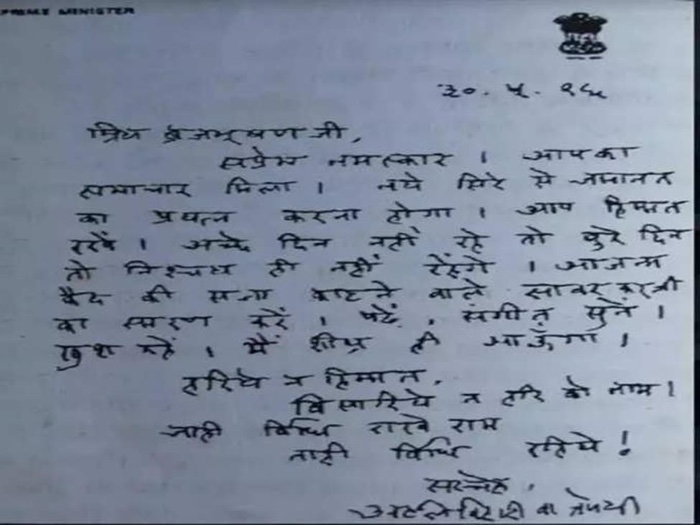 PRIME MINISTER
३०. ५. ९६
प्रिय बृजभूषणजी,
सप्रेम नमस्कार । आपका
समाचार मिला । नये सिरे से जमानत
का प्रयत्न करना होगा । आप हिम्मत
रखें । अच्छे दिन नहीं रहे तो बुरे दिन
तो निश्चय ही नहीं रहेंगे । आजन्म
कैद की सजा काटने वाले सावरकरजी
का स्मरण करें । पढ़ें, संगीत सुनें ।
खुश रहें । मैं शीघ्र ही आऊँगा ।
हारिये न हिम्मत,
बिसारिये न हरि को नाम ।
जाही विधि राखे राम
ताही विधि रहिये !
सस्नेह,
अटल बिहारी वाजपेयी